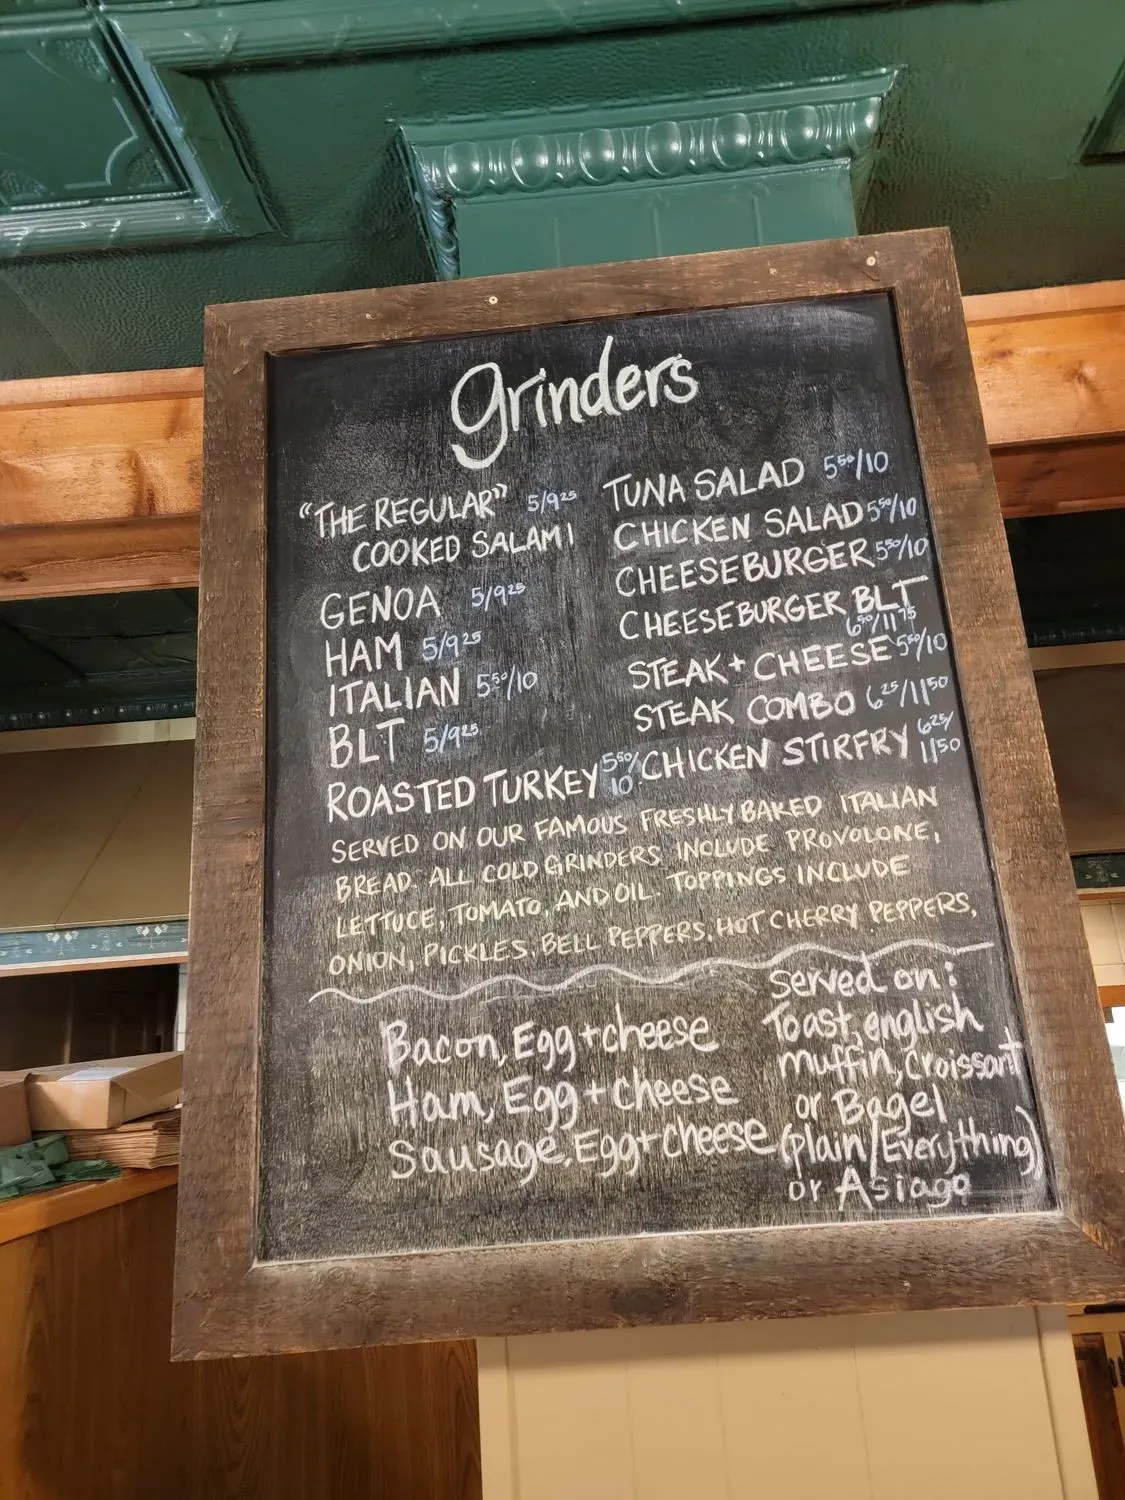 grinders
"THE REGULAR" 5/9²⁵
COOKED SALAMI
GENOA 5/9²⁵
HAM 5/9²⁵
ITALIAN 5⁵⁰/10
BLT 5/9²⁵
ROASTED TURKEY 5⁵⁰/10
TUNA SALAD 5⁵⁰/10
CHICKEN SALAD 5⁵⁰/10
CHEESEBURGER 5⁵⁰/10
CHEESEBURGER BLT
6⁵⁰/11⁷⁵
STEAK + CHEESE 5⁵⁰/10
STEAK COMBO 6²⁵/11⁵⁰
CHICKEN STIRFRY 6²⁵/11⁵⁰
SERVED ON OUR FAMOUS FRESHLY BAKED ITALIAN
BREAD. ALL COLD GRINDERS INCLUDE PROVOLONE,
LETTUCE, TOMATO, AND OIL. TOPPINGS INCLUDE
ONION, PICKLES, BELL PEPPERS, HOT CHERRY PEPPERS,
Bacon, Egg + cheese
Ham, Egg + cheese
Sausage, Egg + cheese
Served on:
Toast, english
muffin, Croissant
or Bagel
(plain/Everything)
or Asiago